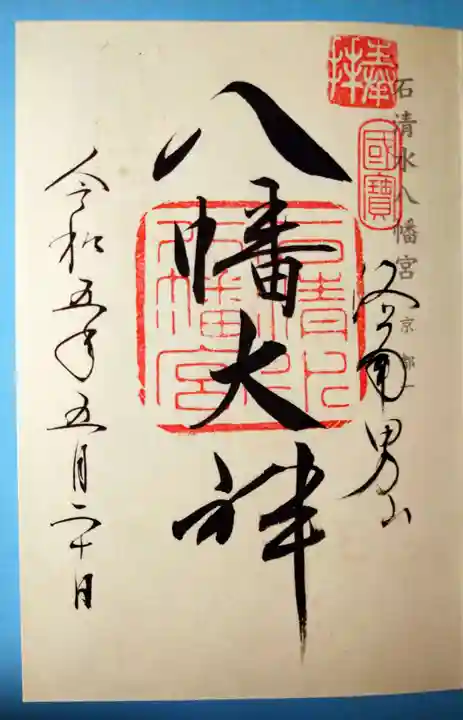 奉拝
石清水八幡宮 京都
國寶
洛南男山
八幡大神
石清水八幡宮
令和五年五月二十日